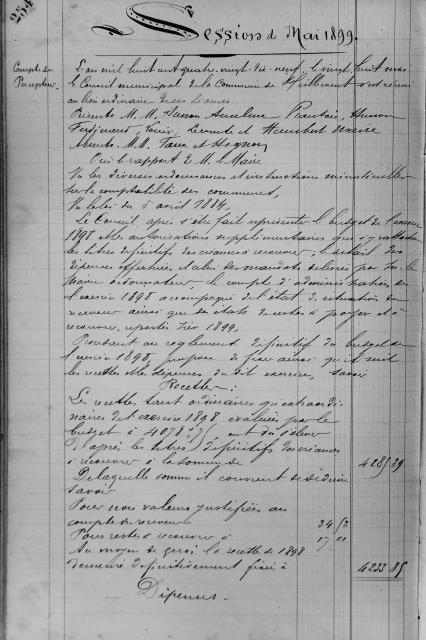 254
Session de Mai 1899.
Compte du
Percepteur.
L'an mil huit cent quatre-vingt-dix-neuf, le vingt huit mai
le Conseil municipal de la Commune de s'est réuni
au lieu ordinaire de ses séances.
Présents M.M. Husson
Ferdinand, Louis, et Humbert Maire
Absents M.M. et
Ouï le rapport de M. le Maire
Vu les diverses ordonnances et instructions ministérielles
sur la comptabilité des communes,
Vu la loi du 5 avril 1884,
Le Conseil, après s'être fait représenter le budget de l'exercice
1898 et les autorisations supplémentaires qui s'y rattachent
les titres définitifs des créances à recouvrer, le détail des
dépenses effectuées, et celui des mandats délivrés par M. le
Maire ordonnateur, le compte d'administration de
l'exercice 1898 accompagné de l'état de situation du
receveur ainsi que des états de restes à payer et à
recouvrer, reportés sur 1899,
Procédant au règlement définitif du budget de
l'exercice 1898, propose de fixer ainsi qu'il suit
les recettes et les dépenses du dit exercice, savoir
Recettes :
Les recettes tant ordinaires qu'extraordi
naires de l'exercice 1898 évaluées par le
budget à ont dû s'élever
d'après les titres définitifs des créances
à recouvrer à la somme de 4285 39
De laquelle somme il convient de déduire
savoir
Pour non valeurs justifiées au
compte du receveur 34 52
Pour restes à recouvrer à 17 00
Au moyen de quoi la recette de 1898
demeure définitivement fixée à 4233 85
Dépenses.